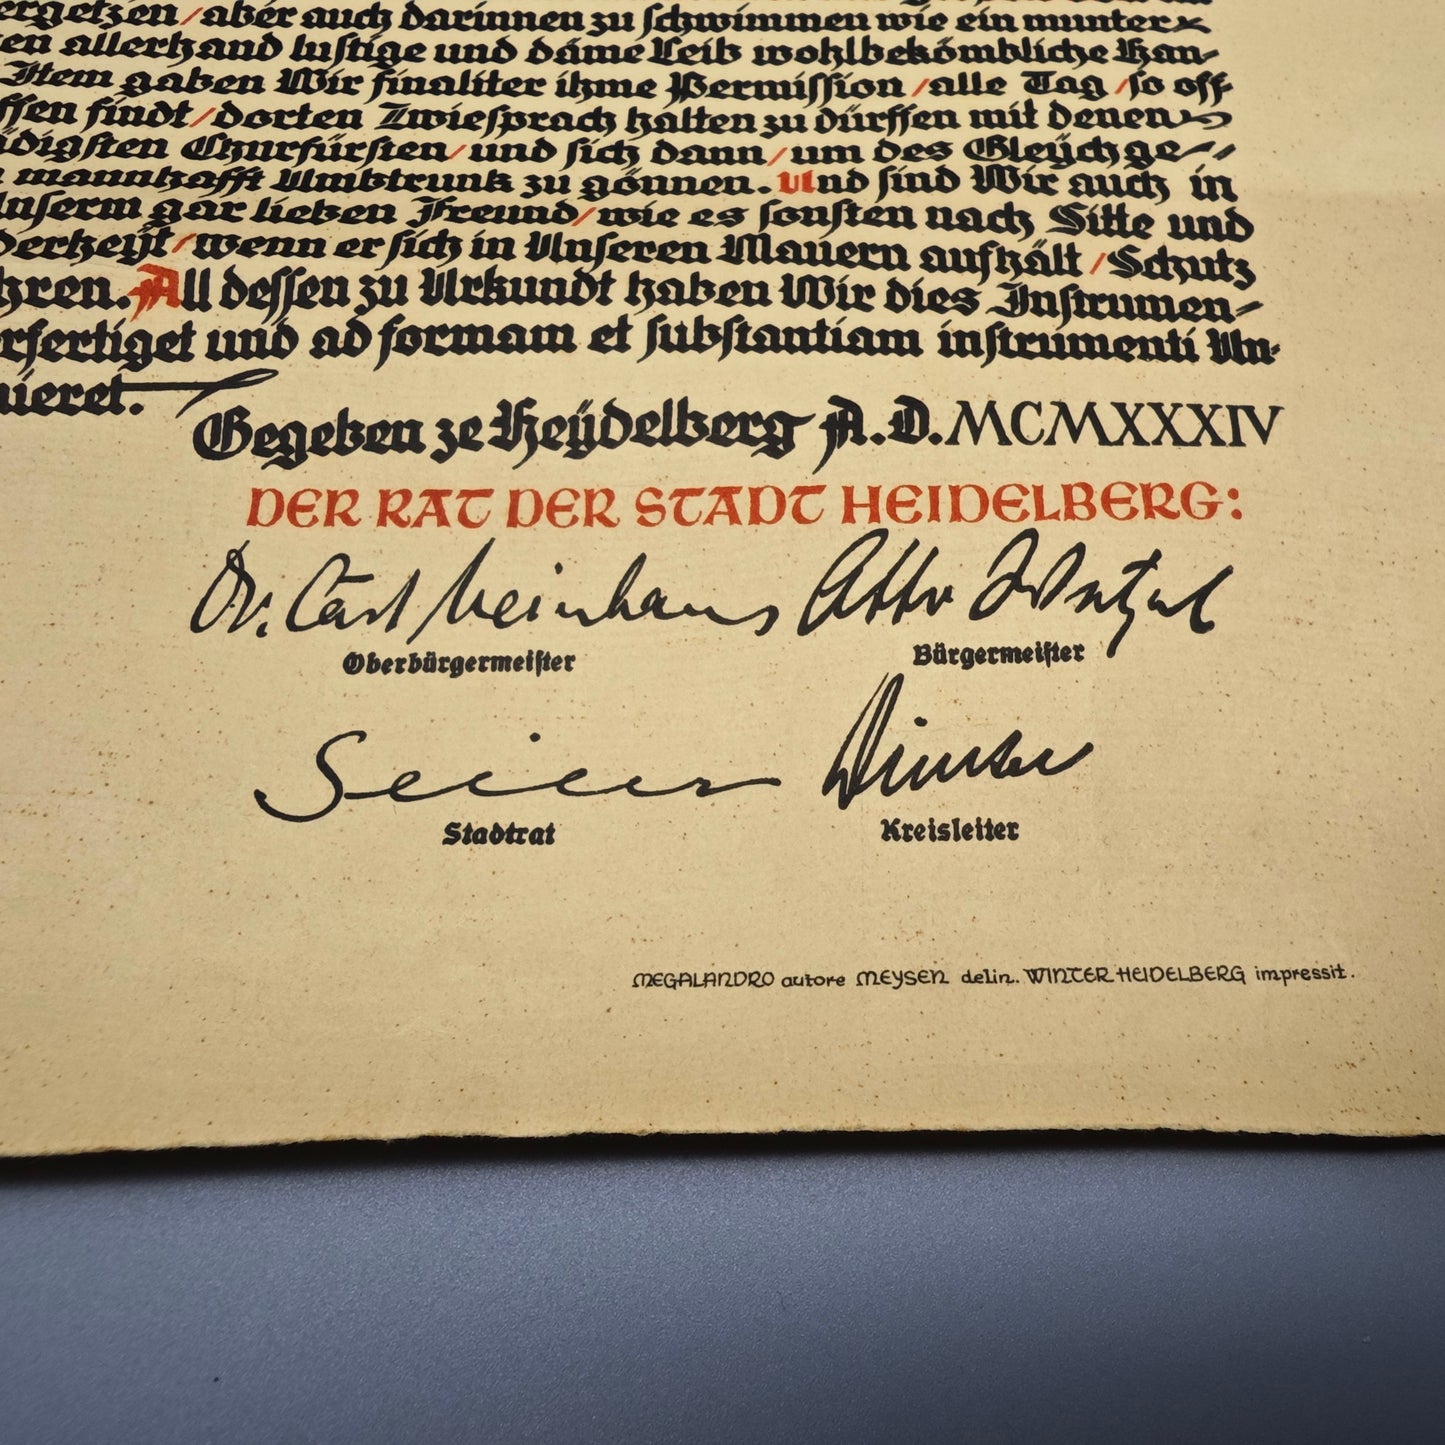 ergetzen/aber auch darinnen zu schwimmen wie ein munter
en allerhand lustige und däme Leib wohlbekömbliche Han-
Item gaben Wir finaliter ihme Permission/alle Tag/so off-
ffen findt/dorten Zwiesprach halten zu dürffen mit denen
ädigsten Churfürsten/und sich dann/um des Gleÿch ge-
mannhafft Umbtrunk zu gönnen. Und sind Wir auch in
Unserm gar lieben Freund/wie es sonsten nach Sitte und
derheÿt/wenn er sich in Unseren Mauern aufhält/Schutz
hren. All dessen zu Urkundt haben Wir dies Instrumen-
rfertiget und ad formam et substantiam instrumenti Un-
uieret.
Gegeben ze Heÿdelberg A.D.MCMXXXIV
DER RAT DER STADT HEIDELBERG:
Dr. Carl Neinhaus Otto Wetzel
Oberbürgermeister Bürgermeister
Seiler
Stadtrat Kreisleiter
MEGALANDRO autore MEYSEN delin. WINTER HEIDELBERG impressit.